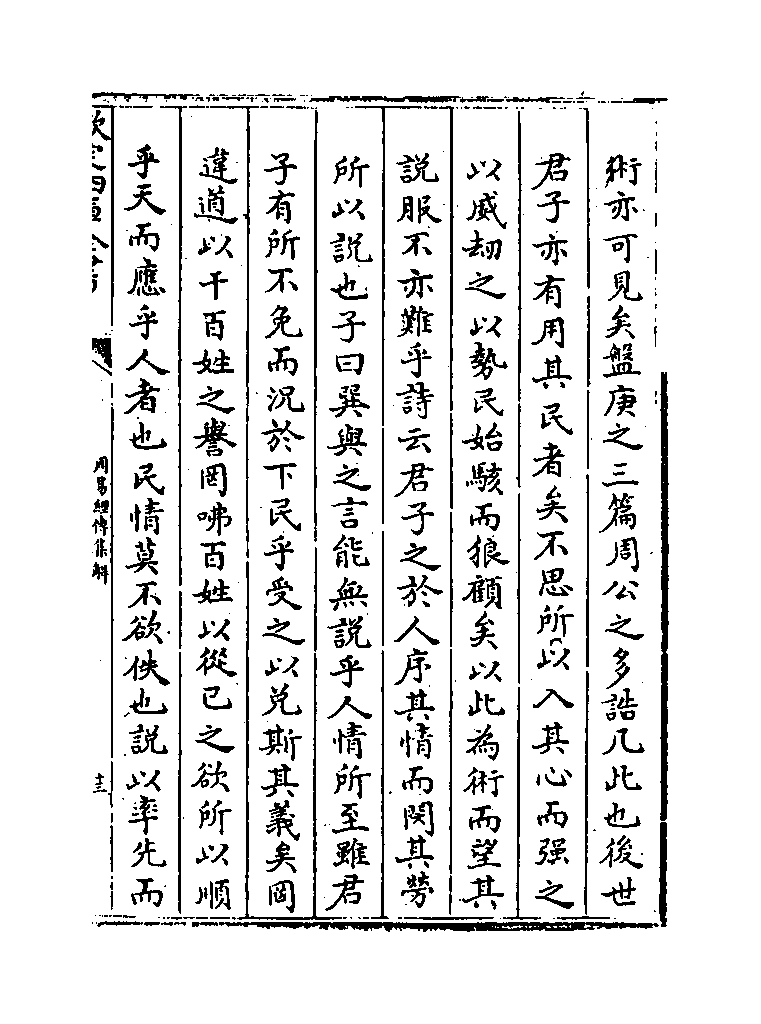 術亦可見矣盤庚之三篇周公之多誥凡此也後世
君子亦有用其民者矣不思所以入其心而强之
以威刼之以勢民始駭而狼顧矣以此為術而望其
説服不亦難乎詩云君子之於人序其情而閔其勞
所以説也子曰巽與之言能無説乎人情所至雖君
子有所不免而況於下民乎受之以兑斯其義矣罔
違道以干百姓之譽罔咈百姓以從已之欲所以順
乎天而應乎人者也民情莫不欲佚也説以率先而
欽定四庫全書
周易經傳集解
十三